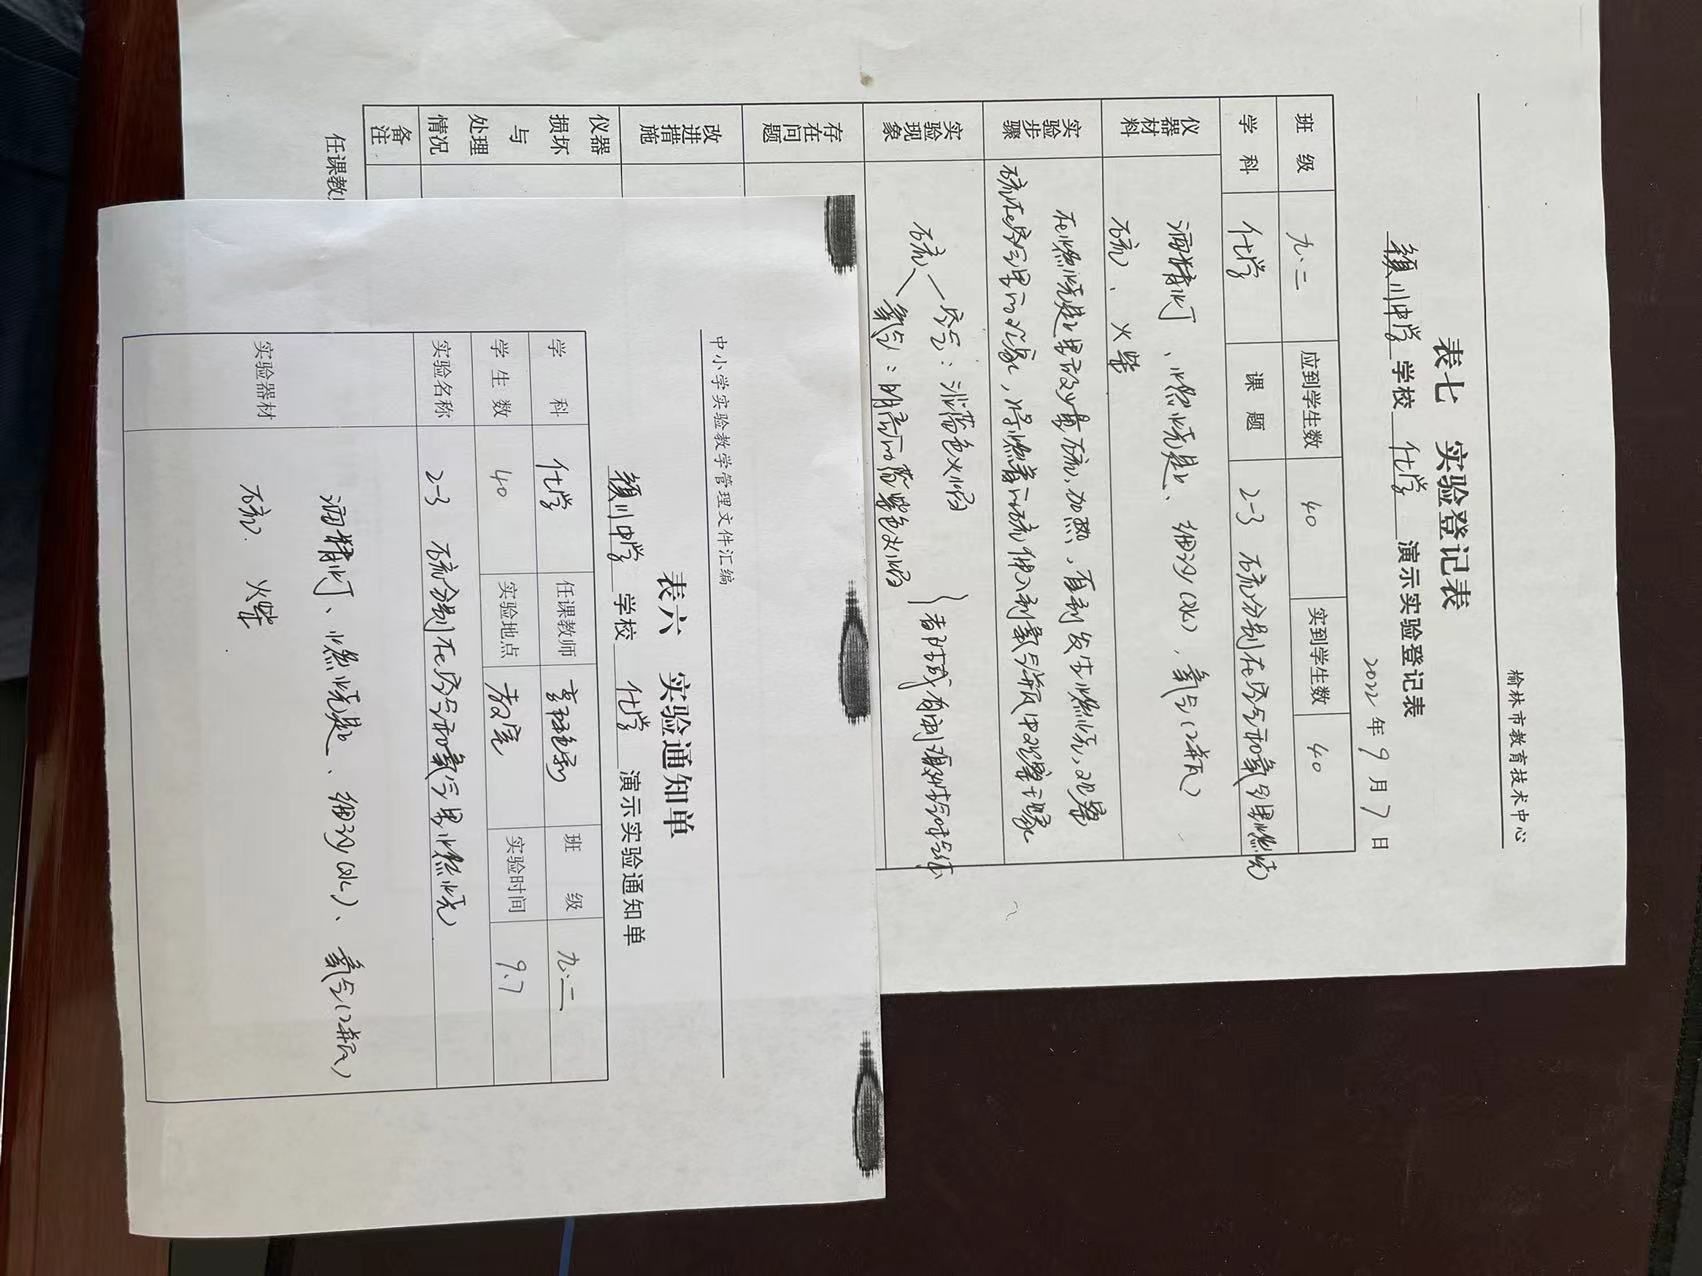 榆林市教育技术中心
表七 实验登记表
颍川中学 学校 化学 演示实验登记表
2022年9月7日
班级 九.二 应到学生数 40 实到学生数 40
学科 化学 课题 2-3 硫分别在空气和氧气里燃烧
仪器材料 酒精灯、燃烧匙、细沙(水)、氧气(2瓶)
硫、火柴
实验步骤 在燃烧匙里放少量硫,加热,直到发生燃烧,观察
硫在空气里的现象,将燃着的硫伸入到氧气瓶中观察现象
实验现象 硫 空气:淡蓝色火焰
氧气:明亮的蓝紫色火焰
都生成有刺激性气味气体
存在问题
改进措施
仪器损坏与处理情况
备注
任课教
中小学实验教学管理文件汇编
表六 实验通知单
颍川中学 学校 化学 演示实验通知单
学科 化学 任课教师 班级 九.二
学生数 40 实验地点 教室 实验时间 9.7
实验名称 2-3 硫分别在空气和氧气里燃烧
实验器材 酒精灯、燃烧匙、细沙(水)、氧气(2瓶)
硫、火柴